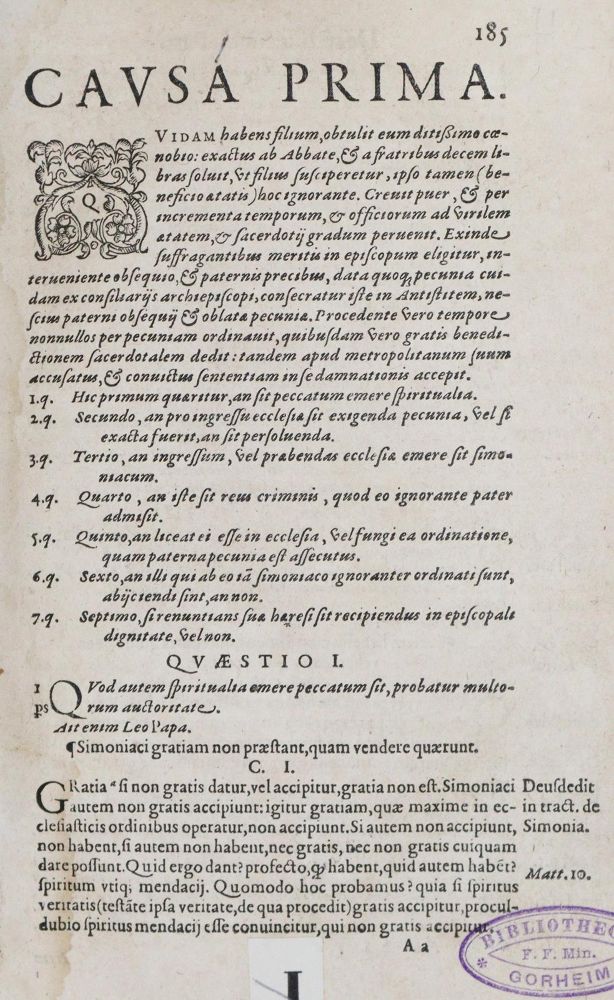 185
CAVSA PRIMA.
QVIDAM habens filium, obtulit eum ditißimo cœ-
nobio: exactus ab Abbate, & a fratribus decem li-
bras soluit, vt filius susciperetur, ipso tamen (be-
neficio ætatis) hoc ignorante. Creuit puer, & per
incrementa temporum, & officiorum ad virilem
ætatem, & sacerdotij gradum peruenit. Exinde
suffragantibus meritis in episcopum eligitur, in-
terueniente obsequio, & paternis precibus, data quoq; pecunia cui-
dam ex consiliarijs archiepiscopi, consecratur iste in Antistitem, ne-
scius paterni obsequij & oblatæ pecuniæ. Procedente vero tempore
nonnullos per pecuniam ordinauit, quibusdam vero gratis benedi-
ctionem sacerdotalem dedit: tandem apud metropolitanum suum
accusatus, & conuictus sententiam in se damnationis accepit.
1.q. Hic primum quæritur, an sit peccatum emere spiritualia.
2.q. Secundo, an pro ingressu ecclesiæ sit exigenda pecunia, vel si
exacta fuerit, an sit persoluenda.
3.q. Tertio, an ingressum, vel præbendas ecclesiæ emere sit simo-
niacum.
4.q. Quarto, an iste sit reus criminis, quod eo ignorante pater
admisit.
5.q. Quinto, an liceat ei esse in ecclesia, vel fungi ea ordinatione,
quam paterna pecunia est assecutus.
6.q. Sexto, an illi qui ab eo iā simoniaco ignoranter ordinati sunt,
abijciendi sint, an non.
7.q. Septimo, si renuntians suæ hæresi sit recipiendus in episcopali
dignitate, vel non.
QVÆSTIO I.
1 QVod autem spiritualia emere peccatum sit, probatur multo-
ps rum auctoritate.
Ait enim Leo Papa.
¶Simoniaci gratiam non præstant, quam vendere quærunt.
C. I.
GRatia a si non gratis datur, vel accipitur, gratia non est. Simoniaci
autem non gratis accipiunt: igitur gratiam, quæ maxime in ec-
clesiasticis ordinibus operatur, non accipiunt. Si autem non accipiunt,
non habent, si autem non habent, nec gratis, nec non gratis cuiquam
dare possunt. Quid ergo dant? profecto, qđ habent, quid autem habēt?
spiritum vtiq; mendacij. Quomodo hoc probamus? quia si spiritus
veritatis (testāte ipsa veritate, de qua procedit) gratis accipitur, procul-
dubio spiritus mendacij esse conuincitur, qui non gratis accipitur.
Deusdedit
in tract. de
Simonia.
Matt. 10.
Aa
BIBLIOTHEC
F. F. Min.
GORHEIM
I